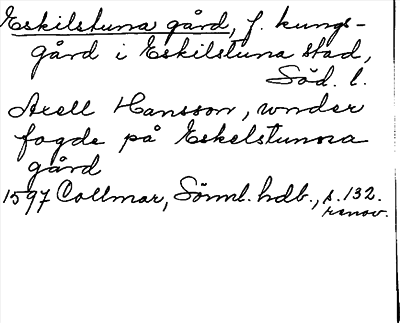 Eskilstuna gård, f. kungs-
gård i Eskilstuna stad,
Söd. l.
Axell Hansson, wnder
fogde på Eskelstunna
gård
1597 Collmar, Sörml. hdb., s. 132.
renov.